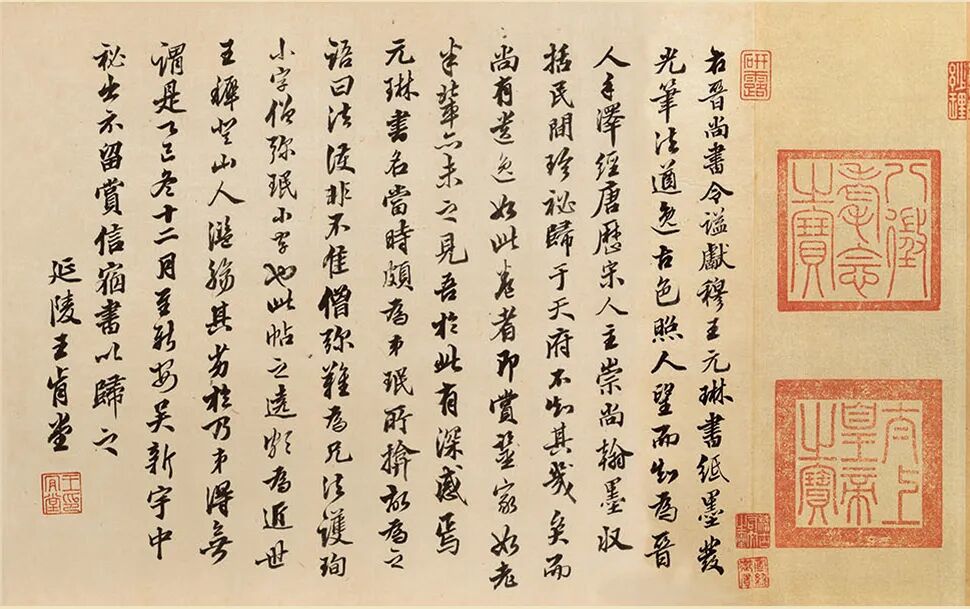 八徵耄念之寶
太上皇帝之寶
右晉尚書令謚獻穆王元琳書紙墨發
光筆法遒逸古色照人望而知為晉
人手澤經唐歷宋人主崇尚翰墨収
括民間珍祕歸于天府不知其幾矣而
尚有遺逸如此卷者即賞鑒家如老
米輩亦未之見吾於此有深感焉
元琳書名當時頗為弟珉所揜故為之
語曰法護非不佳僧彌難為兄法護珣
小字僧彌珉小字也此帖之為近世
王穉登山人濫觴其劣於乃弟得無
謂是乎乙巳冬十二月至新安吳新宇中
祕出示留賞信宿書以歸之
延陵王肯堂